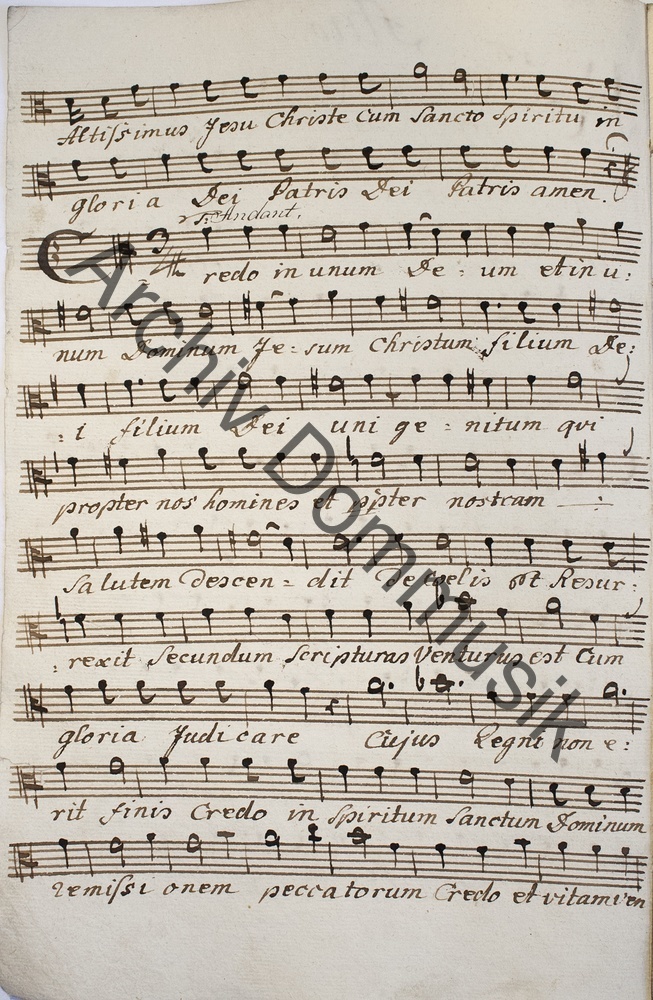 Altissimus Jesu Christe Cum Sancto Spiritu in
gloria Dei Patris Dei Patris amen.
Andant.
3/4
Credo in unum De = um et in u:
num Dominum Je = sum Christum filium De:
: i filium Dei uni ge = nitum qui
propter nos homines et ppter nostram
Salutem descen = dit de coelis et Resur:
: rexit Secundum Scripturas Venturus est Cum
gloria Judicare Cujus Regni non e:
rit finis Credo in Spiritum Sanctum Dominum
remissionem peccatorum Credo et vitam ven
Archiv Dommusik